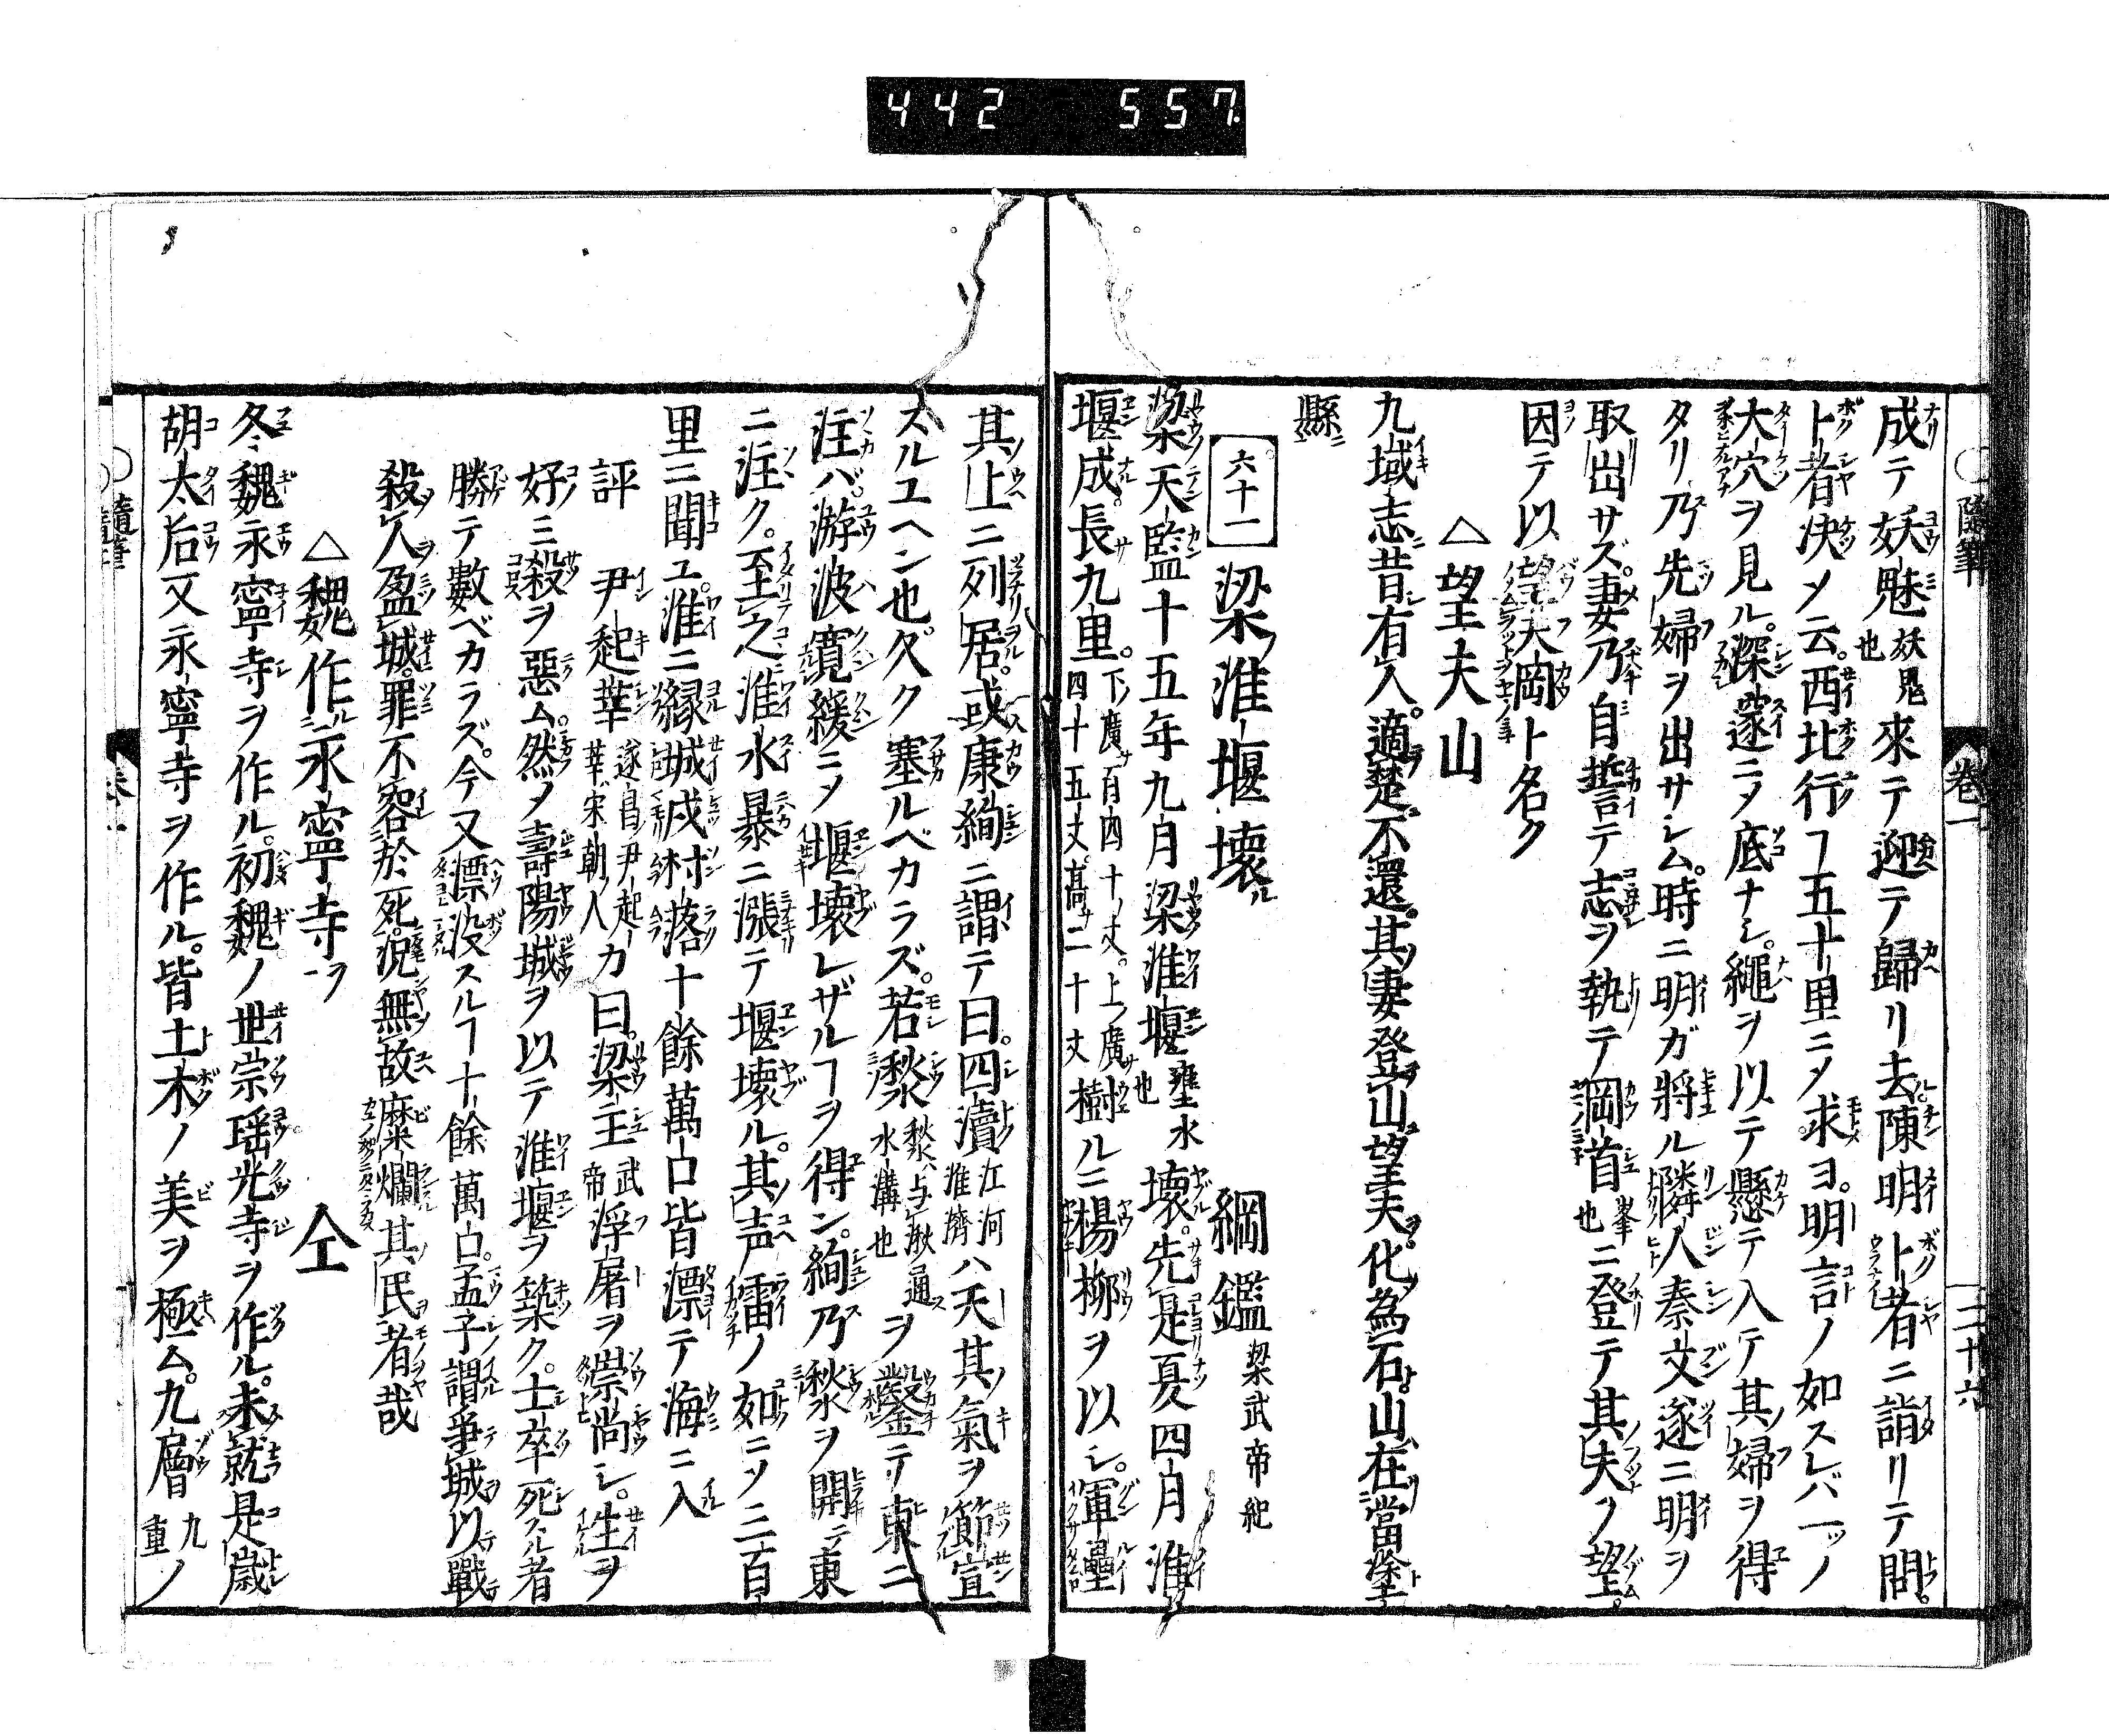 442 557.
隨筆 卷一 二十六
成テ妖魅妖鬼也來テ迎テ歸リ去ル陳明卜者ニ詣リテ問フ。
卜者決メ云。西北行ヿ五十里ニメ求ヨ。明言ノ如スレバ一ツノ
大穴ヲ見ル。深邃ニメ底ナシ。繩ヲ以テ懸テ入テ其婦ヲ得
タリ乃先婦ヲ出サシム。時ニ明ガ將ル隣人秦文遂ニ明ヲ
取出サズ。妻乃自誓テ志ヲ執テ岡首峯也ニ登テ其夫ヲ望ム。
因テ以望夫岡ト名ク
△望夫山
九域志昔有人。適楚不還。其妻登山望夫。化為石。山在當塗
縣
六十一 梁淮堰壞ル 綱鑑梁武帝紀
梁天監十五年九月梁淮堰壅水也壞。先是夏四月淮
堰成。長九里。下廣サ百四十丈。上廣サ四十五丈。髙サ二十丈樹ルニ楊柳ヲ以シ。軍壘
其上ニ列居。或康絢ニ謂テ曰。四瀆江河淮濟ハ天其氣ヲ節宣
スルユヘン也。久ク塞ルベカラズ。若湫湫ハ与湫通ス水溝也ヲ鑿テ東ニ
注バ。游波寛緩ニメ堰壞レザルヿヲ得ン。絢乃湫ヲ開テ東
ニ注ク。至之淮水暴ニ漲テ堰壞ル。其声雷ノ如ニメ三百
里ニ聞ユ。淮ニ縁城戍村落十餘萬口皆漂テ海ニ入
評 尹起莘遂昌尹起莘宋朝人カ曰。梁主武帝浮屠ヲ崇尚シ。生ヲ
好ミ殺ヲ惡ム。然メ壽陽城ヲ以テ淮堰ヲ築ク。士卒死スル者
勝テ數ベカラズ。今又漂没スルヿ十餘萬口。孟子謂爭城以戰
殺人盈城。罪不容於死。况無故糜爛其民者哉
△魏作永寧寺ヲ 仝
冬魏永寧寺ヲ作ル。初魏ノ世宗瑶光寺ヲ作ル。未就是歳
胡太后又永寧寺ヲ作ル。皆土木ノ美ヲ極ム。九層九重ノ
隨筆 卷一